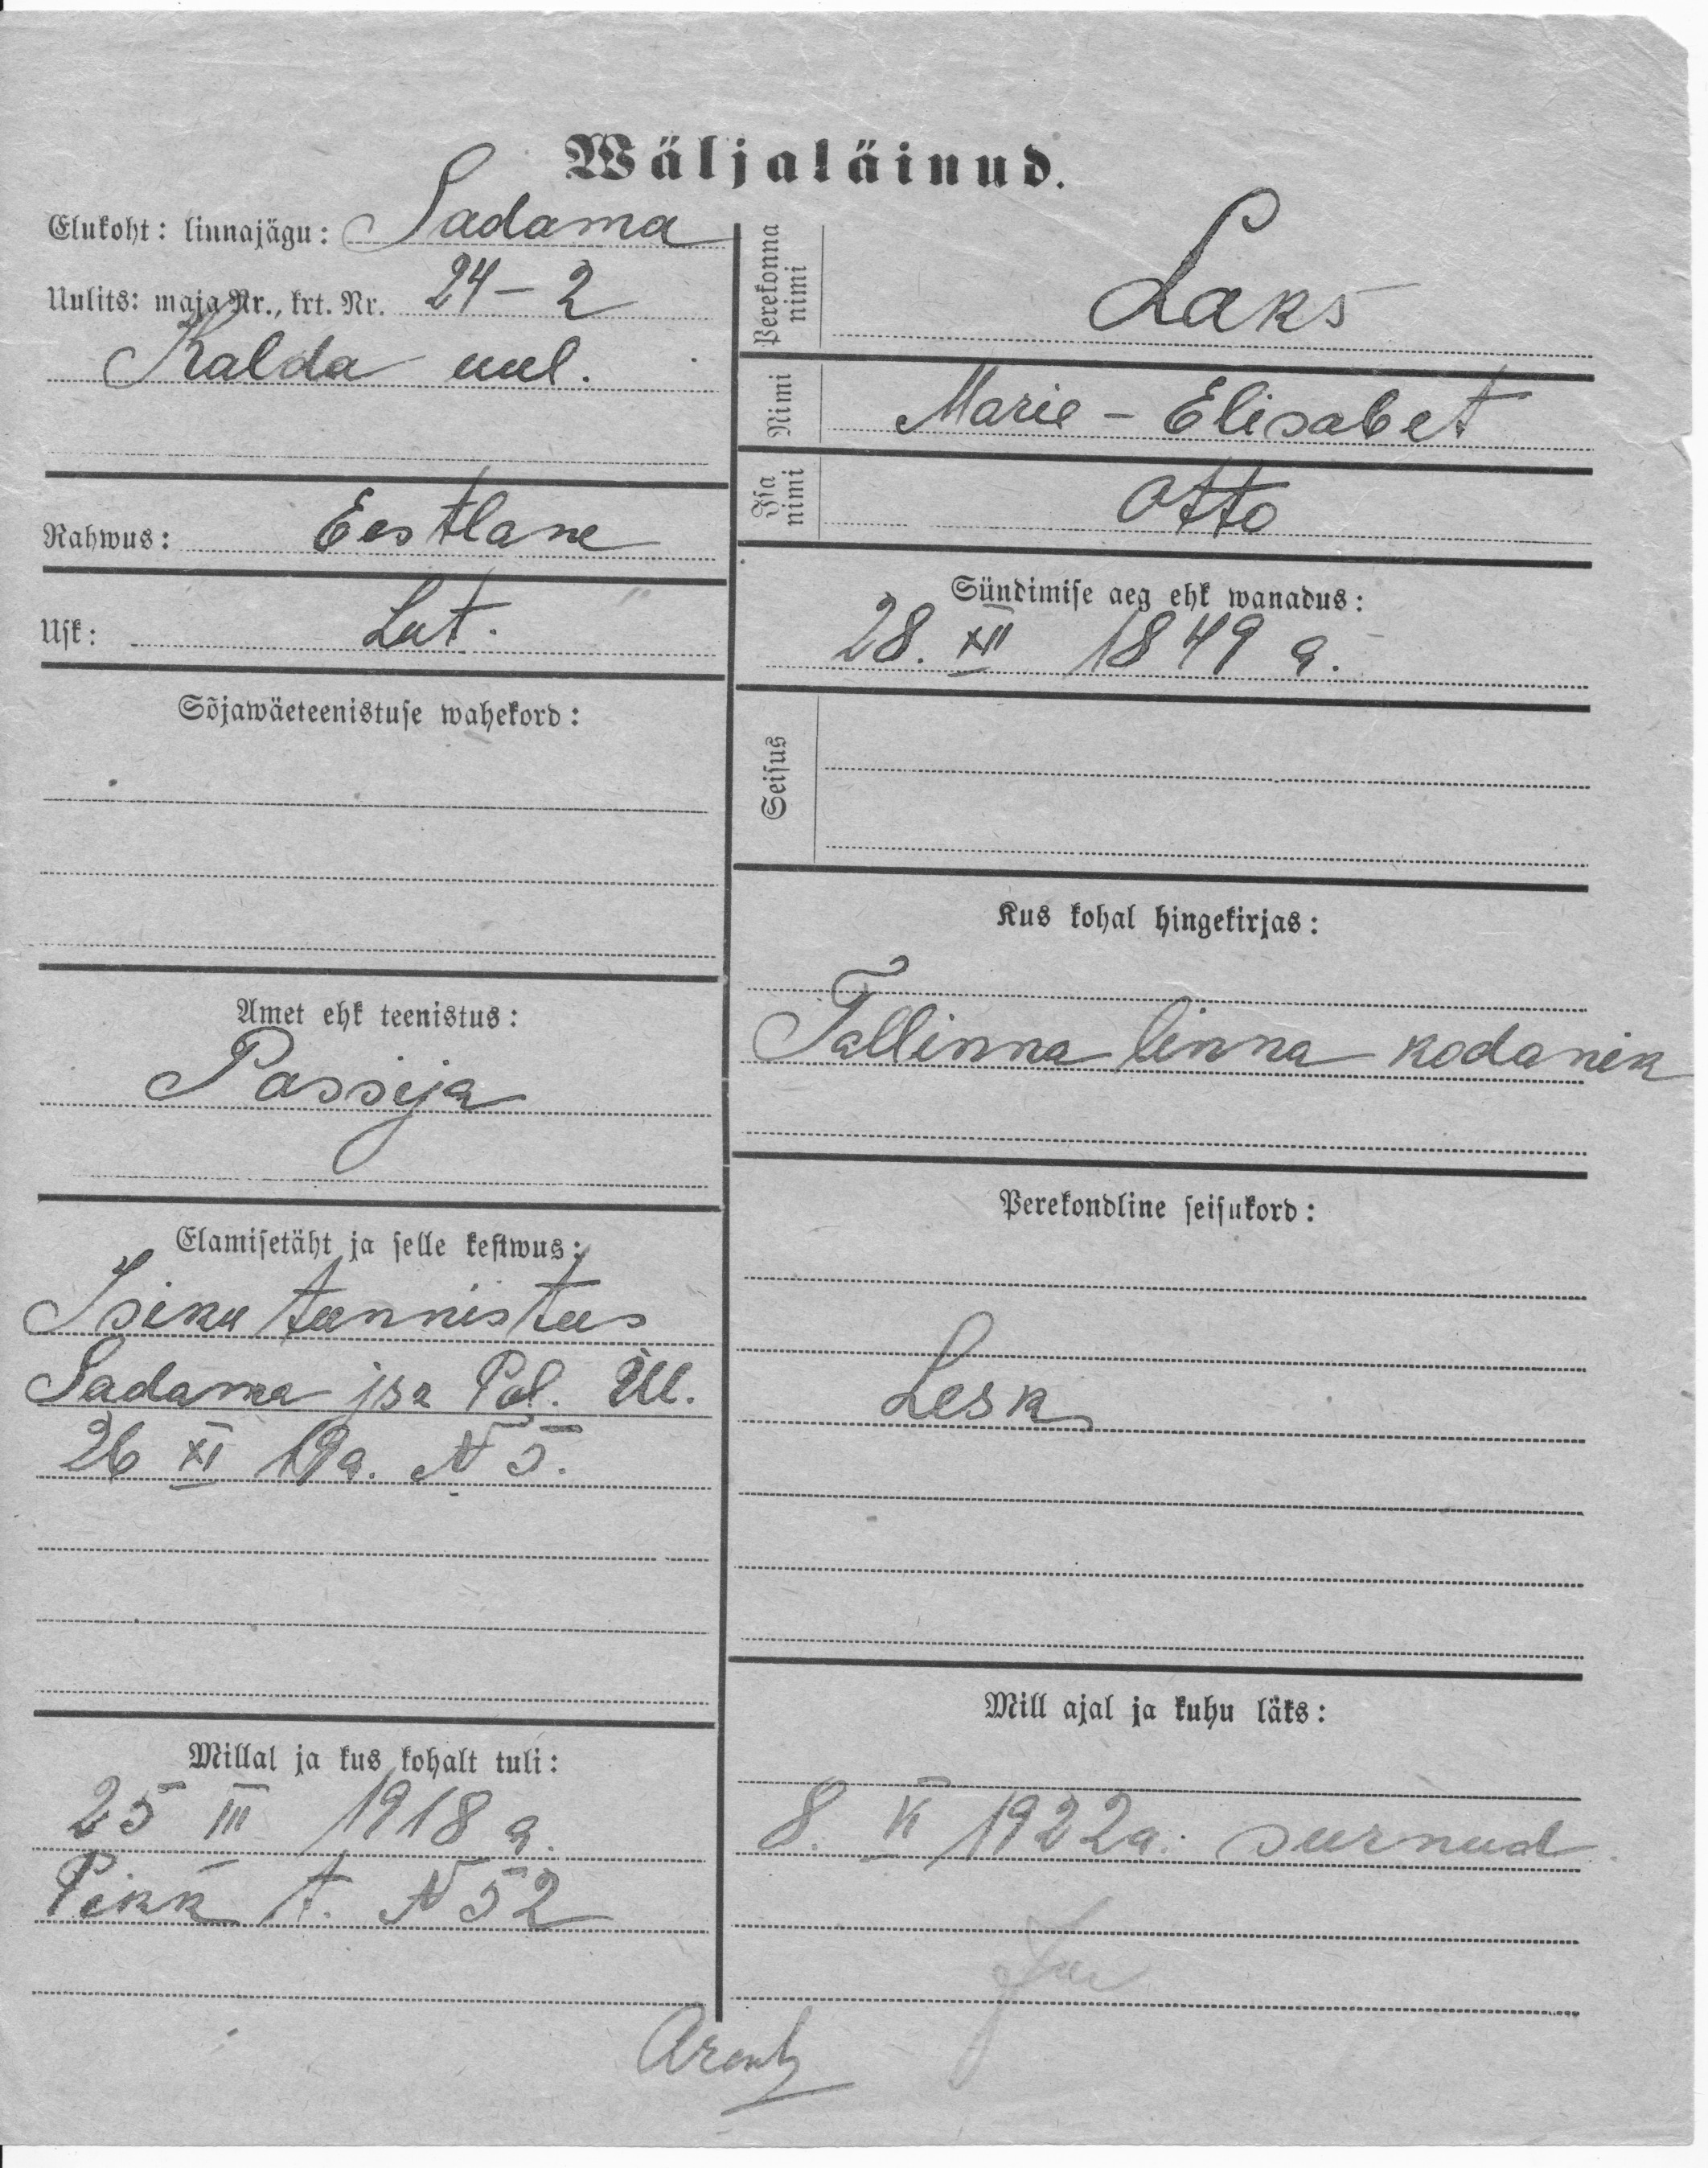 Wäljaläinud.
Elukoht: linnajägu: Sadama
Uulits: maja Nr., krt. Nr. 24 – 2
Kalda uul.
Rahwus: Eestlane
Usk: Lut.
Sõjawäeteenistuse wahekord:
Amet ehk teenistus:
Passija
Elamisetäht ja selle kestwus:
Isiku tunnistus
Sadama jsk Pol. Ül.
26 XI 19 a. N 5.
Millal ja kus kohalt tuli:
25 III 1918 a.
Pikk t. N 52
Perekonna nimi
Laks
Nimi
Marie - Elisabet
Isa nimi
Otto
Sündimise aeg ehk wanadus:
28. XII 1849 a.
Seisus
Kus kohal hingekirjas:
Tallinna linna kodanik
Perekondline seisukord:
Lesk
Mill ajal ja kuhu läks:
8. VI 1922 a. surnud